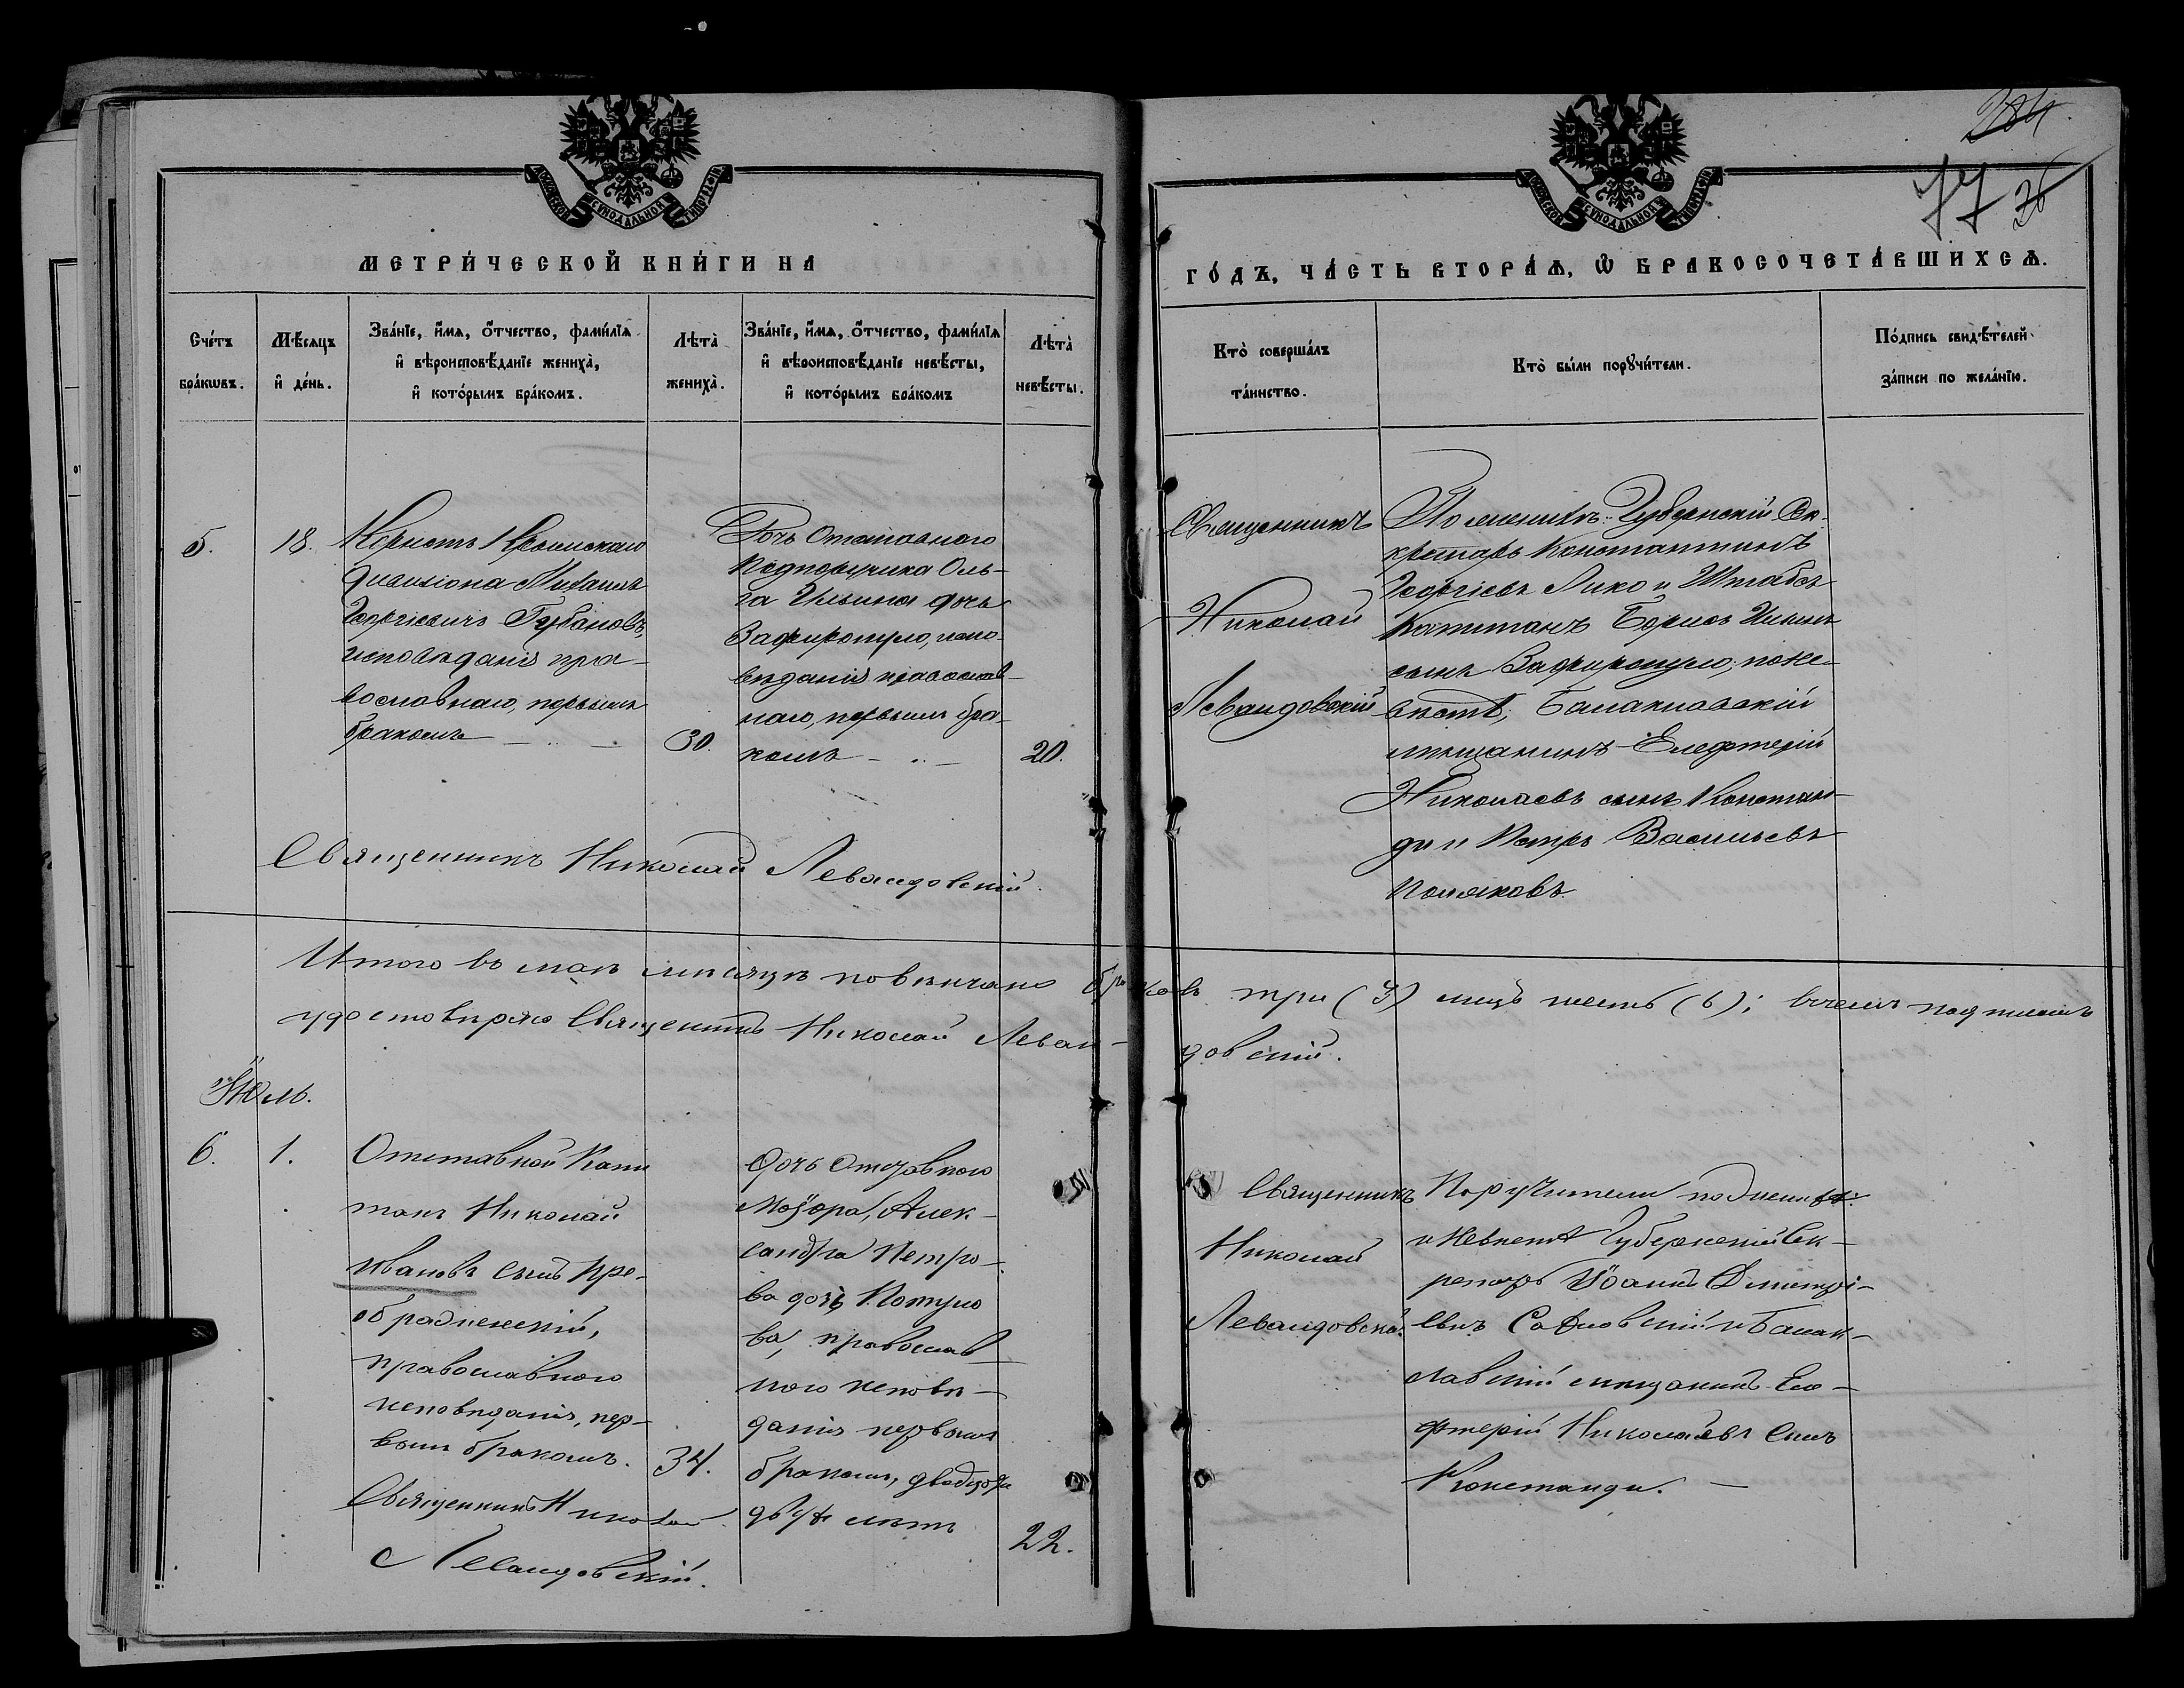 284.
77 26
МОСКОВСКОЙ СѴНОДАЛЬНОЙ ТИПОГРАФІИ
МОСКОВСКОЙ СѴНОДАЛЬНОЙ ТИПОГРАФІИ
МЕТРИ́ЧЕСКОЙ КНИ́ГИ НА
ГО́ДЪ, ЧА́СТЬ ВТОРА́Ѧ, Ѡ҆ БРАКОСОЧЕТА́ВШИХСѦ.
Сче́тъ бра́кѡвъ.
Мѣ́сяцъ и҆ де́нь.
Зва́нїе, и҆́мя, ѻ҆́тчество, фами́лїя
и҆ вѣроисповѣ́данїе жениха̀,
и҆ кото́рымъ бра́комъ.
Лѣта̀ жениха̀.
Зва́нїе, и҆́мя, ѻ҆́тчество, фами́лїя
и҆ вѣроисповѣ́данїе невѣ́сты,
и҆ кото́рымъ бра́комъ
Лѣта̀ невѣ́сты.
Кто̀ соверша́лъ та́инство.
Кто̀ бы́ли порꙋчи́тели.
По́дпись свидѣ́телей за́писи по жела́нїю.
5.
18.
Корнетъ Крымскаго
дивизіона Михаилъ
Георгіевичъ Губановъ,
исповѣданія пра-
вославнаго, первымъ
бракомъ
30.
Дочь Отставного
Подпоручика Оль-
га Ильина дочь
Зафиропуло, испо-
вѣданія православ-
наго, первымъ бра-
комъ
20.
Священникъ
Николай
Левандовскій
По женихѣ: Губернскій Се-
кретарь Константинъ
Георгіевъ Лико и Штабсъ
Капитанъ Борисъ Ильинъ
сынъ Зафиропуло; по не-
вѣстѣ, Балаклавскій
мѣщанинъ Елефтерій
Николаевъ сынъ Констан-
ди и Петръ Васильевъ
Поляковъ.
Священникъ Николай Левандовскій.
Итого въ маѣ мѣсяцѣ повѣнчано браковъ три (3) лицъ шесть (6); въ чемъ подписомъ
удостовѣряю Священникъ Николай Леван-
довскій.
Июль.
6.
1.
Отставной Капи
танъ Николай
Ивановъ сынъ Пре-
ображенскій,
православного
исповѣданія, пер-
вымъ бракомъ.
34.
Священникъ Николай
Левандовскій.
Дочь Отставного
Маіора, Алек-
сандра Петро-
ва дочь Потуло
ва, православ
ного исповѣ-
данія первымъ
бракомъ, двадцати
двухъ лѣтъ
22.
Священникъ
Николай
Левандовскій
Поручители по жениху:
и Невѣстѣ Губернскій Сек-
ретарь Іоаннъ Дмитрі-
евъ и Балак-
лавскій мѣщанинъ Еле-
фтерій Николаевъ сынъ
Констанди.